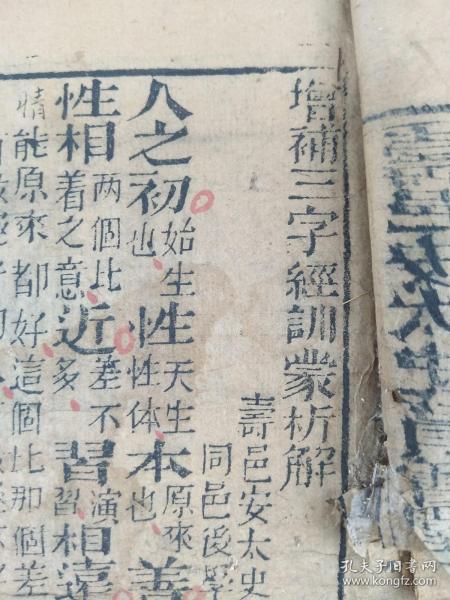 增補三字經訓蒙析解
壽邑安太史
同邑後學
人之初始生也性天生性体本原來也善
性相两個比着之意近差不多習演習相遠
情能原來都好這個比那個差
孔夫子旧书网